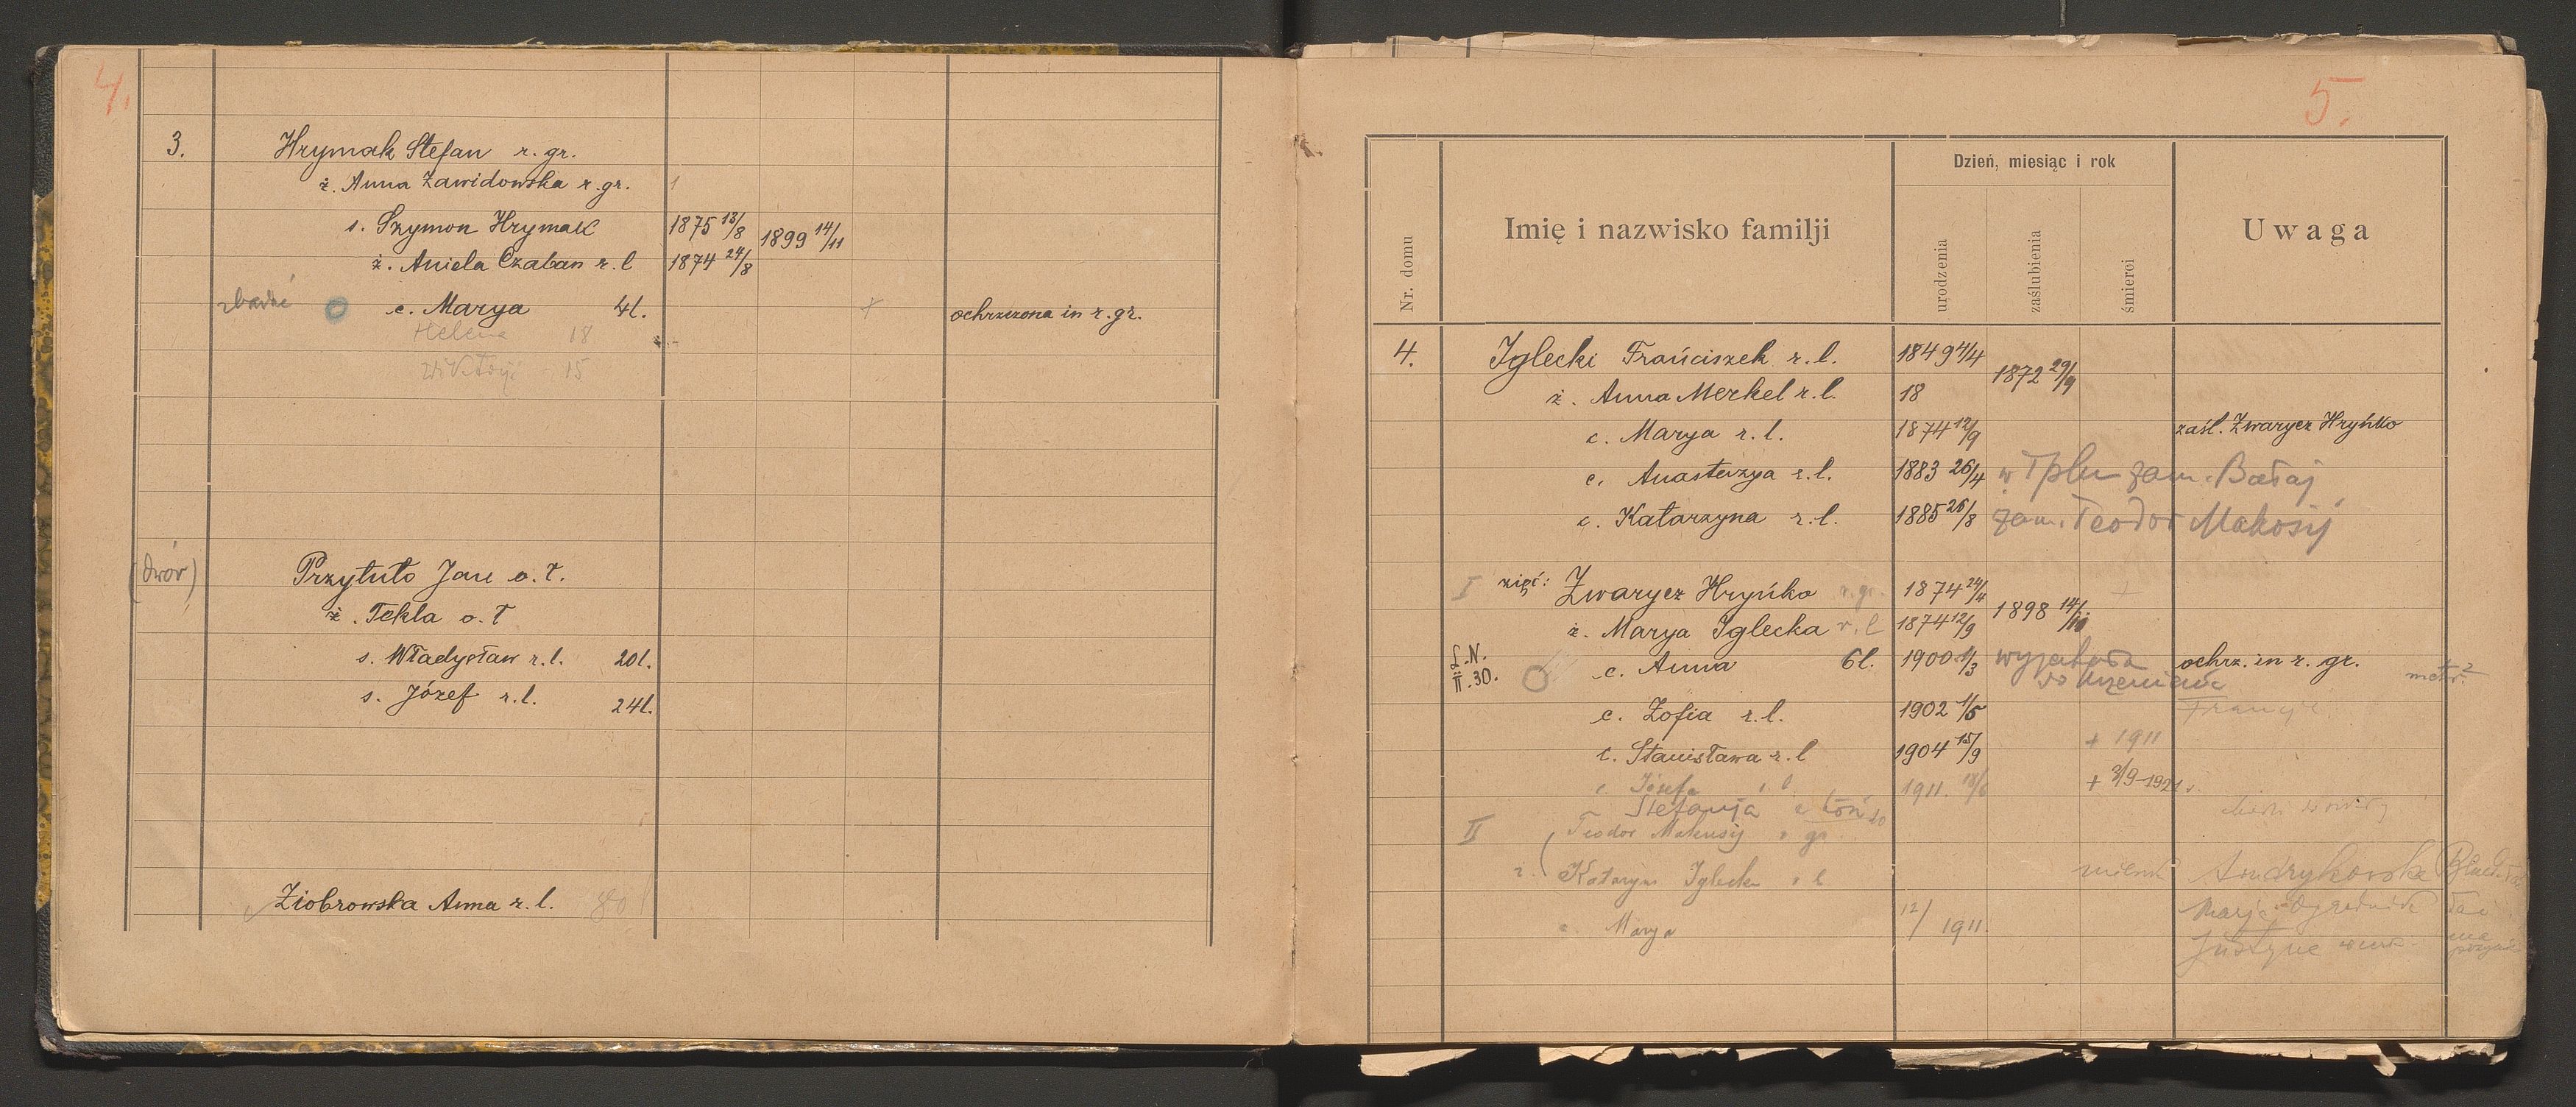 4.
3.
Hrymak Stefan r. gr.
ż. Anna Zawidowska r. gr.
s. Szymon Hrymak 1875 13/8 1899 14/11
ż. Aniela Czaban r. l 1874 24/8
zbadać c. Marya 4l. + ochrzczona in r. gr.
Helena 18
Wiktorja 15
(dwór) Przytuło Jan o. ł.
ż. Tekla o. ł
s. Władysław r. l. 20l.
s. Józef r. l. 24l.
Ziobrowska Anna r. l. 80
5.
Nr. domu
Imię i nazwisko familji
Dzień, miesiąc i rok
urodzenia
zaślubienia
śmierci
Uwaga
4. Iglecki Frańciszek r. l. 1849 4/4 1872 29/9
ż. Anna Merkel r. l. 18
c. Marya r. l. 1874 12/9 zaśl. Zwarycz Hryńko
c. Anastazya r. l. 1883 26/4 w Tplu zam. Bałaj
c. Katarzyna r. l. 1885 26/8 zam. Teodor Makosij
I zięć: Zwarycz Hryńko r. gr. 1874 24/4 +
ż. Marya Iglecka r. l 1874 12/9 1898 14/10
L.N. II.30. c. Anna 6l. 1900 1/3 wyjechała ochrz. in r. gr. metr.
do
c. Zofia r. l. 1902 1/5 Francji
c. Stanisława r. l 1904 15/9 + 1911
c. Józefa r. l. 1911 18/6 + 2/9-1921 r.
Stefanja
II Teodor Makosij r gr
ż. Katarzyna Iglecka r l
c Marya 12/ 1911
Marja
Justyna